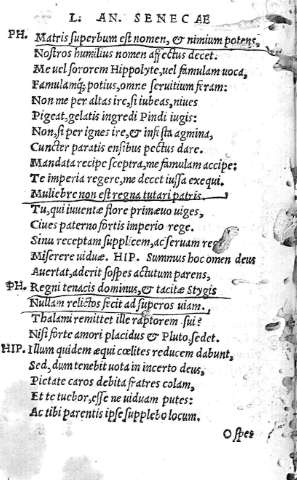 L. AN. SENECAE
PH. Matris superbum est nomen, & nimium potens,
Nostros humilius nomen affectus decet.
Me uel sororem Hippolyte, uel famulam uoca,
Famulamq; potius, omne seruitium feram:
Non me per altas ire, si iubeas, niues
Pigeat, gelatis ingredi Pindi iugis:
Non, si per ignes ire, & infesta agmina,
Cuncter paratis ensibus pectus dare.
Mandata recipe sceptra, me famulam accipe:
Te imperia regere, me decet iussa exequi.
Muliebre non est regna tutari patris.
Tu, qui iuuentæ flore primæuo uiges,
Ciues paterno fortis imperio rege.
Sinu receptam supplicem, ac seruam rege
Miserere uiduæ. HIP. Summus hoc omen deus
Auertat, aderit sospes actutum parens,
PH. Regni tenacis dominus, & tacitæ Stygis
Nullam relictos fecit ad superos uiam.
Thalami remittet ille raptorem sui?
Nisi forte amori placidus & Pluto, sedet.
HIP. Illum quidem æqui cœlites reducem dabunt,
Sed, dum tenebit uota in incerto deus,
Pietate caros debita fratres colam,
Et te tuebor, esse ne uiduam putes:
Ac tibi parentis ipse supplebo locum.
O spes